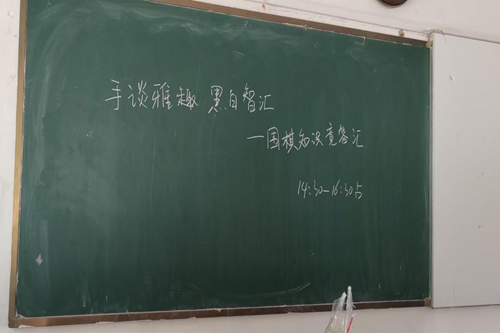 手谈雅趣 黑白智汇
一围棋知识竞答汇
14:30-16:30点